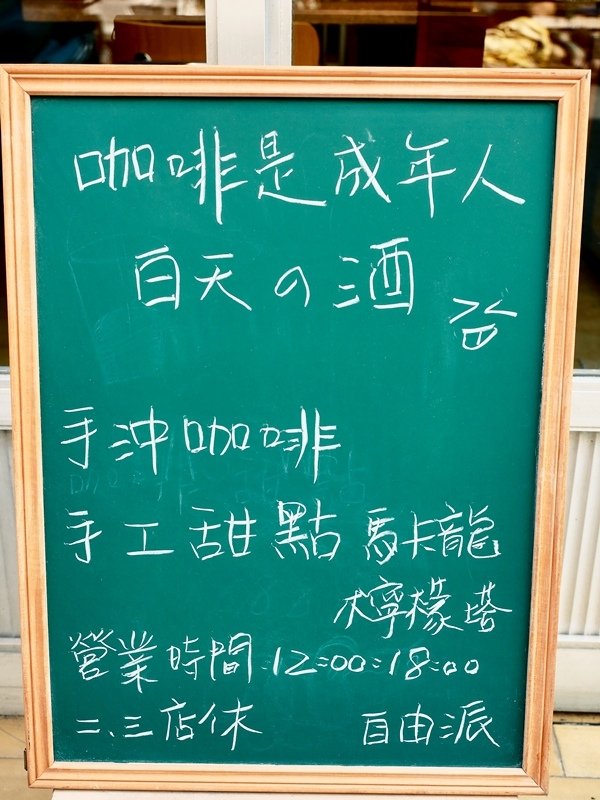 咖啡是成年人
白天の酒
手沖咖啡
手工甜點 馬卡龍
檸檬塔
營業時間:12:00:18:00
二、三店休 自由派